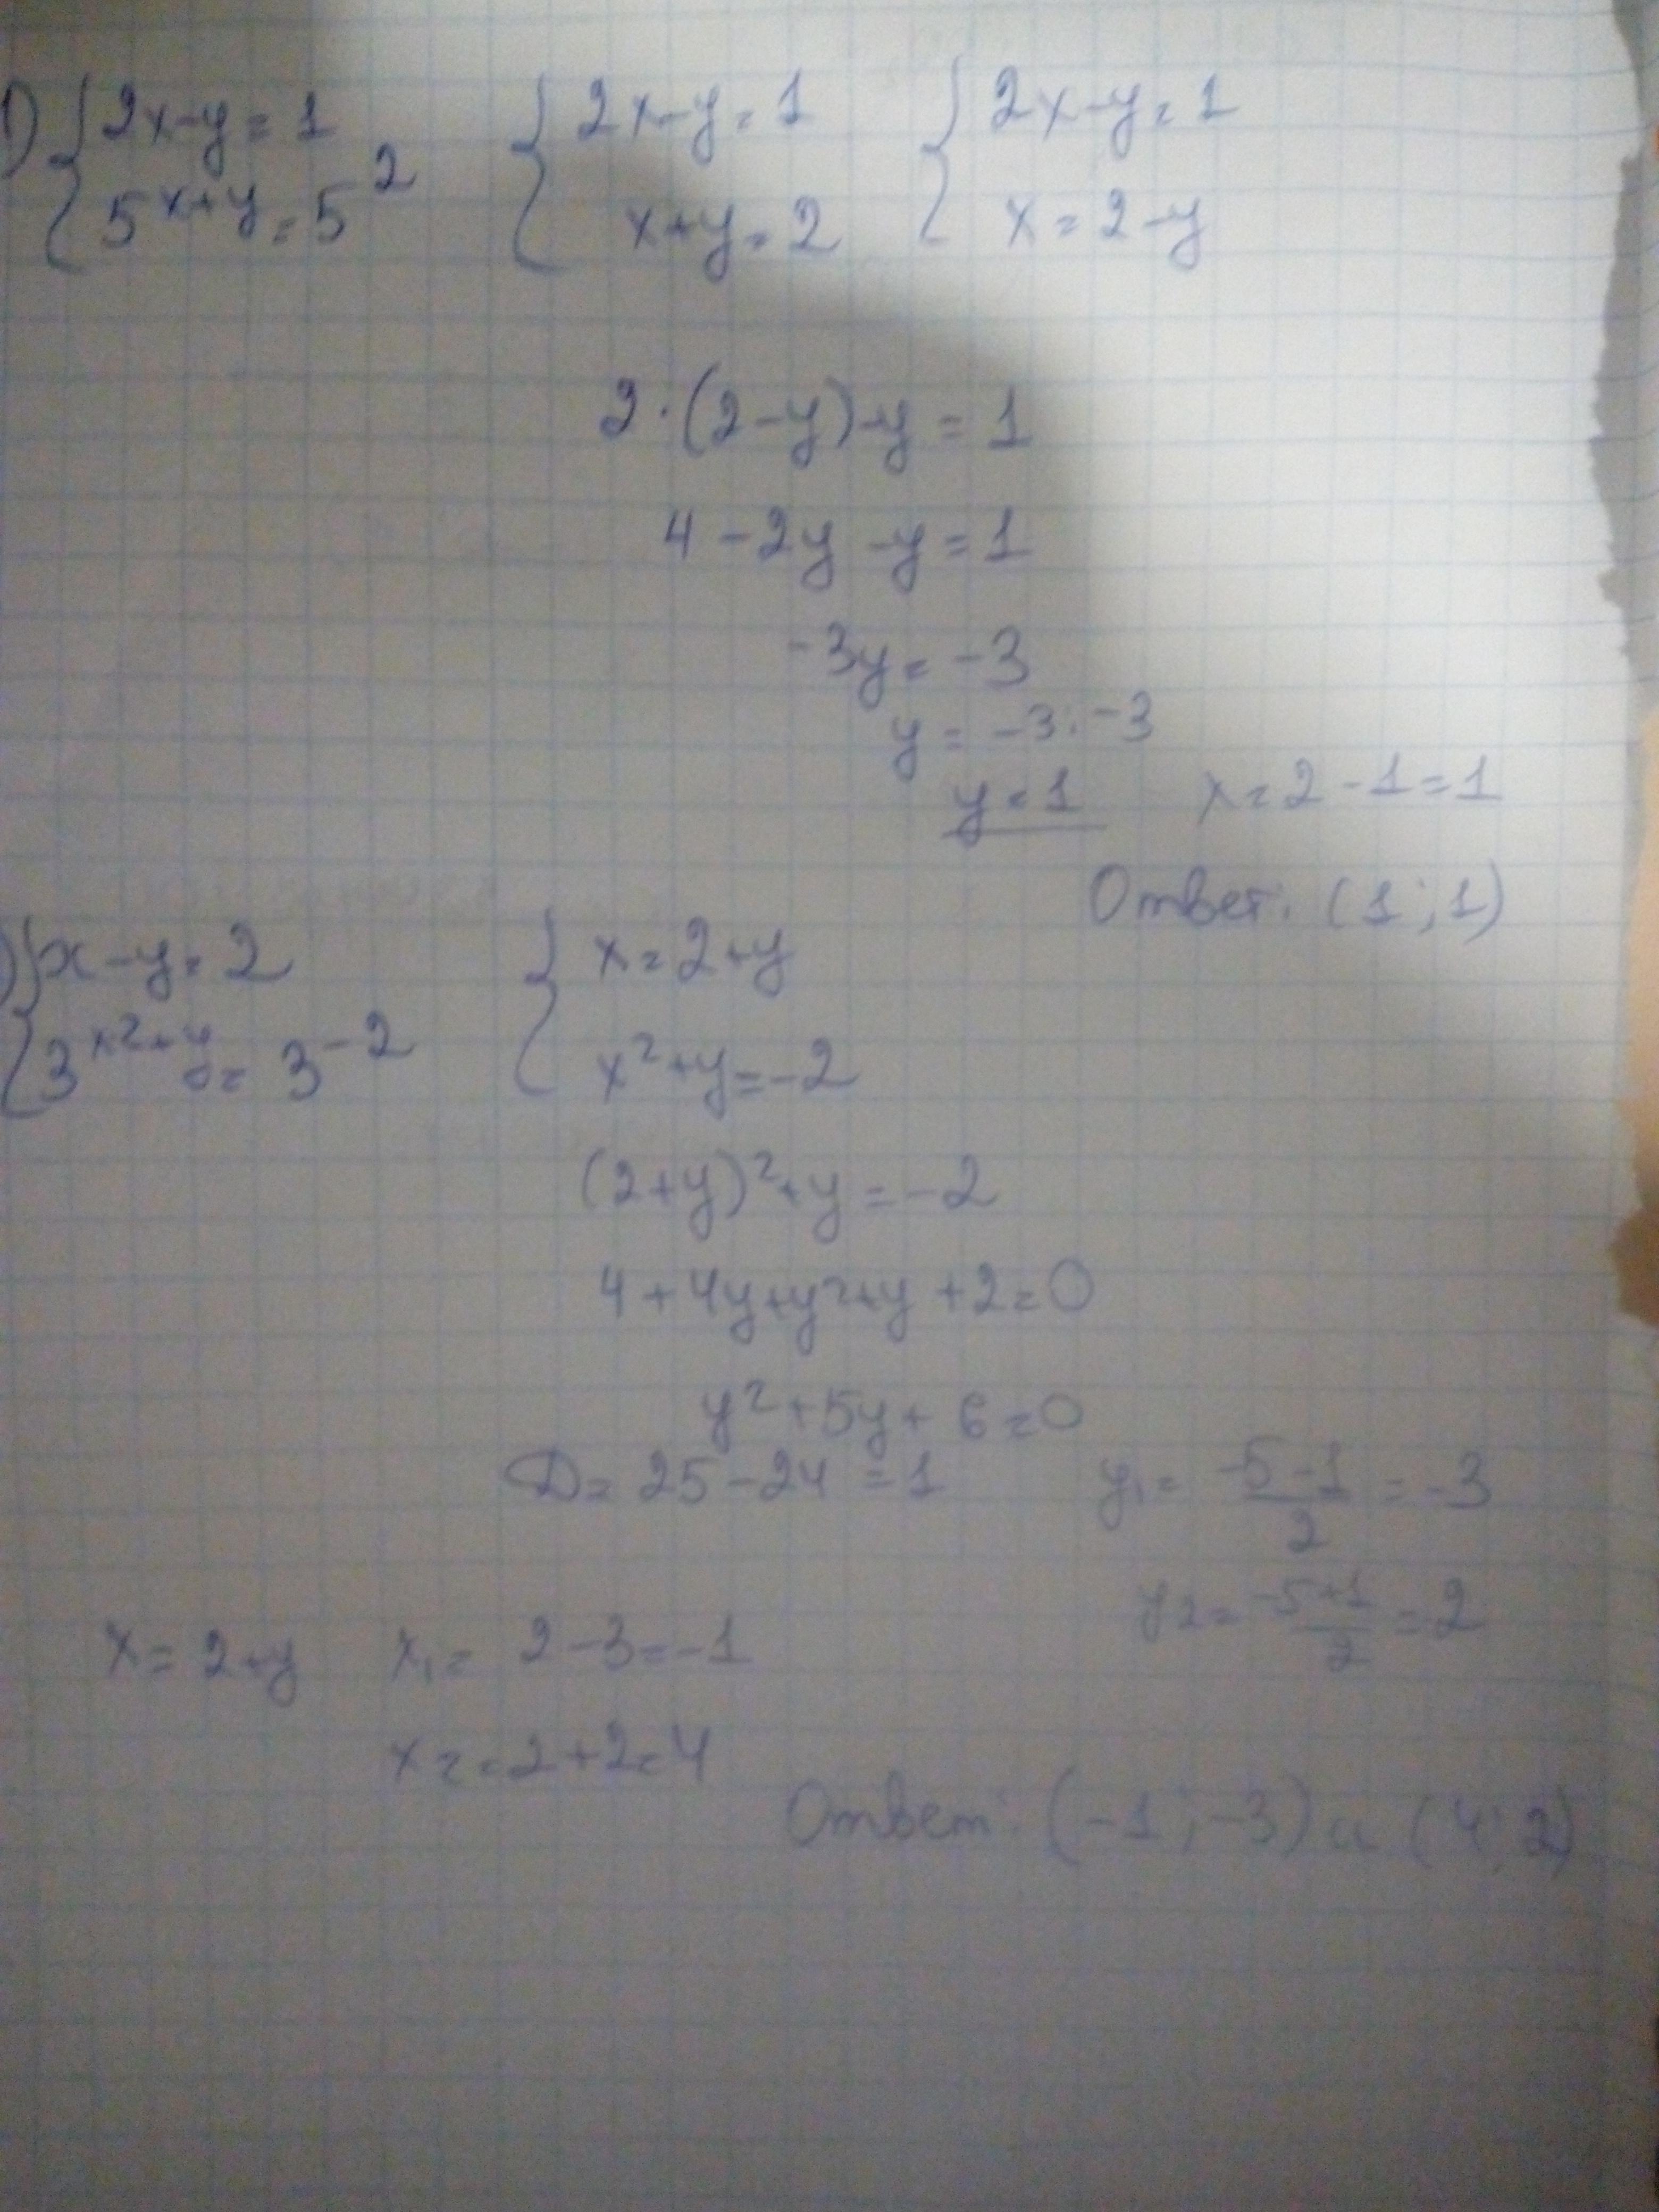 1) { 2x-y=1 { 2x-y=1 { 2x-y=1
5^{x+y}=5^2 x+y=2 x=2-y
2·(2-y)-y=1
4-2y-y=1
-3y=-3
y=-3:-3
y=1 x=2-1=1
Ответ: (1;1)
) { x-y=2 { x=2+y
3^{x²+y}=3^{-2} x²+y=-2
(2+y)²+y=-2
4+4y+y²+y+2=0
y²+5y+6=0
D=25-24=1 y₁=\frac{-5-1}{2}=-3
y2=\frac{-5+1}{2}=2
x=2+y x₁=2-3=-1
x₂=2+2=4
Ответ: (-1;-3) и (4;2)